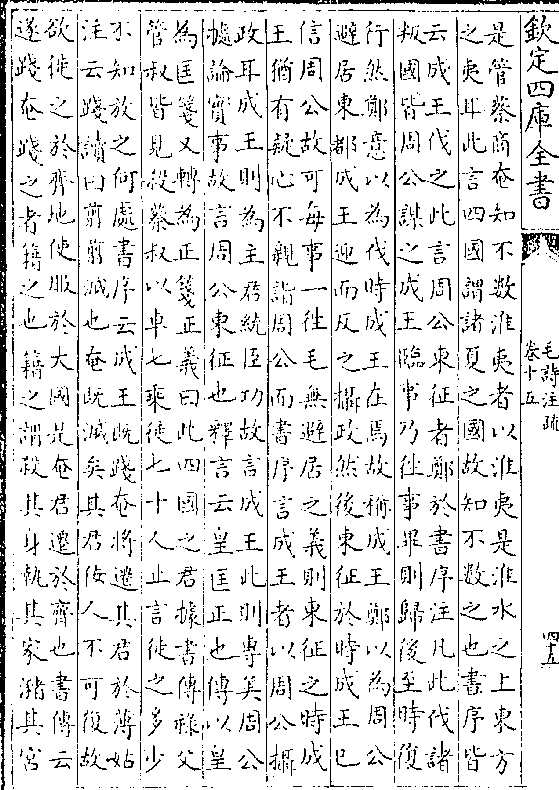 欽定四庫全書
毛詩注疏
卷十五
四十五
是管蔡商奄知不數淮夷者以淮夷是淮水之上東方
之夷耳此言四國謂諸夏之國故知不數之也書序皆
云成王伐之此言周公東征者鄭於書序注凡此伐諸
叛國皆周公謀之成王臨事乃往事畢則歸後至時復
行然鄭意以為伐時成王在焉故稱成王鄭以為周公
避居東都成王迎而反之攝政然後東征於時成王已
信周公故可每事一往毛無避居之義則東征之時成
王猶有疑心不親詣周公而書序言成王者以周公攝
政耳成王則為主君統臣功故言成王此則專美周公
據論實事故言周公東征也釋言云皇匡正也傳以皇
為匡箋又轉為正箋正義曰此四國之君據書傳祿父
管叔皆見殺蔡叔以車七乘徒七十人止言徒之多少
不知放之何處書序云成王既踐奄將遷其君於薄姑
注云踐讀曰翦翦滅也奄既滅矣其君佞人不可復故
欲徙之於齊地使服於大國是奄君遷於齊也書傳云
遂踐奄踐之者籍之也籍之謂殺其身執其家瀦其宮